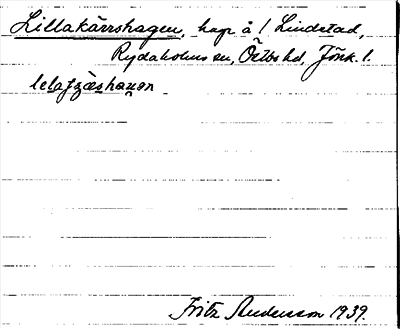 Lillakärrshagen, hage å / Lindstad,
Rydaholms sn, Östbo hd, Jönk. l.
Fritz Andersson 1939.